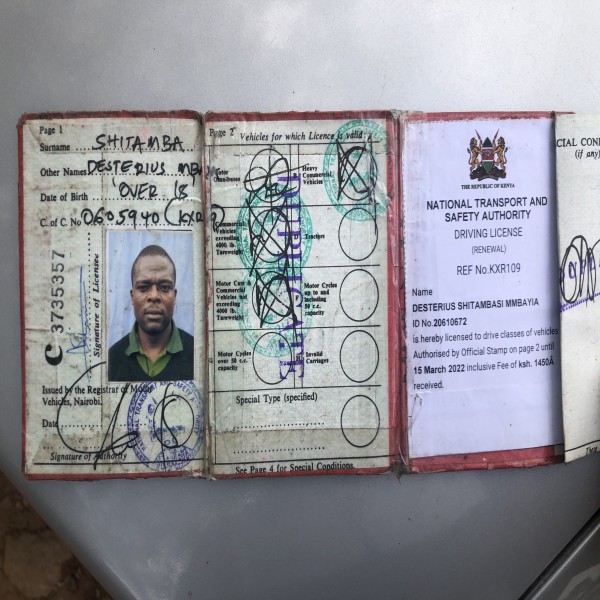 Page 1
Surname SHITAMBA
Other Names DESTERIUS MB
Date of Birth OVER 18
C. of C. No 0605940 (KXR
C 3735357
Signature of Licensee
Issued by the Registrar of Motor
Vehicles, Nairobi.
Date
Signature of Authority
Page 2
Vehicles for which Licence is valid
Motor
Omnibuses
Heavy
Commercial
Vehicles
Commercial
Vehicles
exceeding
4000 lb.
Tareweight
Tractors
Motor Cars &
Commercial
Vehicles not
exceeding
4000 lb.
Tareweight
Motor Cycles
up to and
including
50 c.c.
capacity
Motor Cycles
over 50 c.c.
capacity
Invalid
Carriages
DUPLICATE
Special Type (specified)
See Page 4 for Special Conditions.
THE REPUBLIC OF KENYA
NATIONAL TRANSPORT AND
SAFETY AUTHORITY
DRIVING LICENSE
(RENEWAL)
REF No.KXR109
Name
DESTERIUS SHITAMBASI MMBAYIA
ID No.20610672
is hereby licensed to drive classes of vehicles
Authorised by Official Stamp on page 2 until
15 March 2022 inclusive Fee of ksh. 1450Â
received.
CIAL CON
(if any)